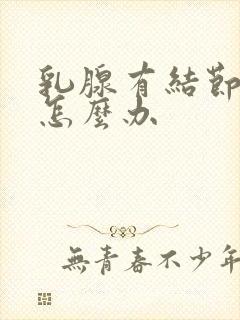 乳腺有結節
怎麼办
無青春不少年